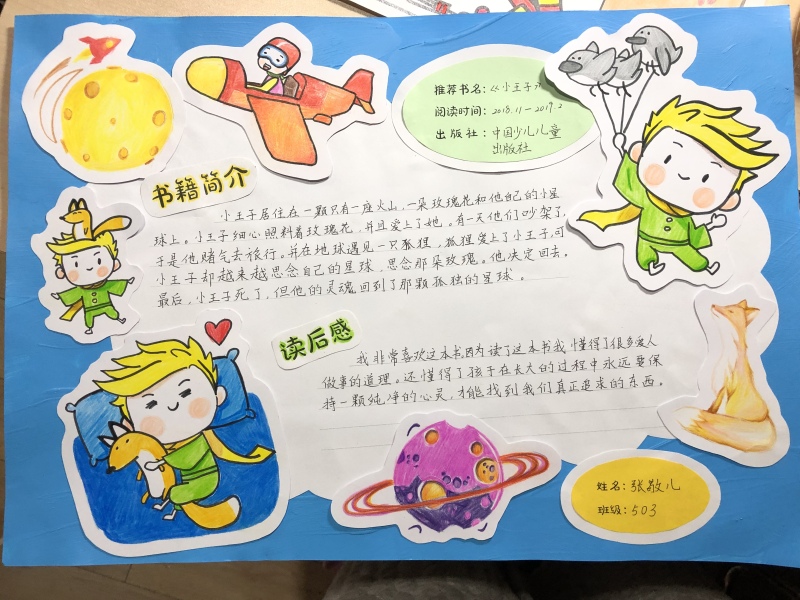 推荐书名：《小王子》
阅读时间：2018.11－2019.2
出版社：中国少儿儿童
出版社
书籍简介
小王子居住在一颗只有一座火山，一朵玫瑰花和他自己的小星
球上。小王子细心照料着玫瑰花，并且爱上了她。有一天他们吵架了，
于是他赌气去旅行。并在地球遇见一只狐狸，狐狸爱上了小王子，可
小王子却越来越思念自己的星球，思念那朵玫瑰。他决定回去。
最后，小王子死了，但他的灵魂回到了那颗孤独的星球。
读后感
我非常喜欢这本书，因为读了这本书我懂得了很多爱人
做事的道理。还懂得了孩子在长大的过程中永远要保
持一颗纯净的心灵，才能找到我们真正追求的东西。
姓名：张敬儿
班级：503